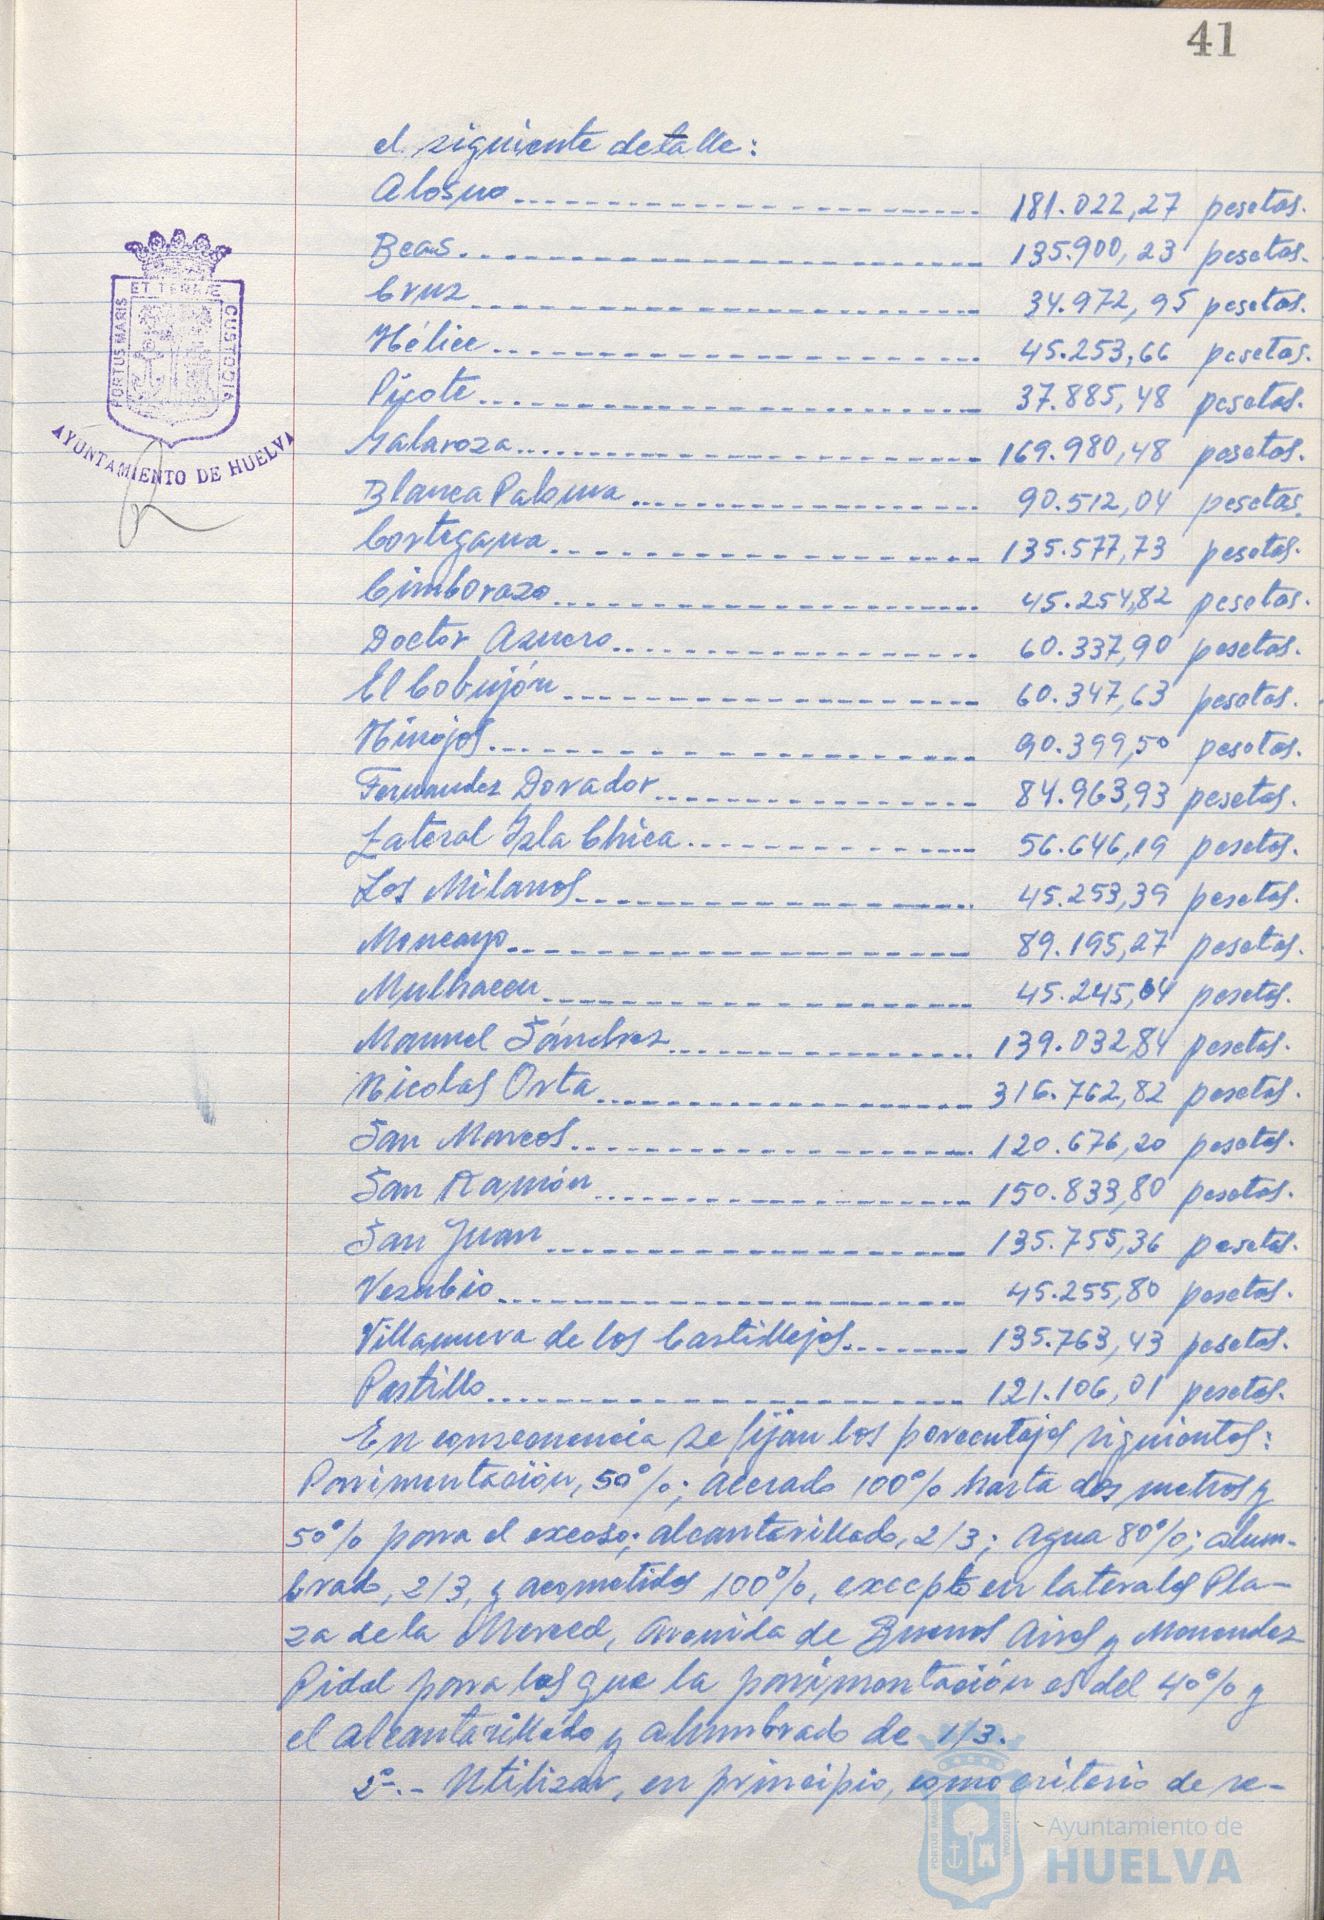 41
el siguiente detalle:
Alosno 181.022,27 pesetas.
Beas 135.900,23 pesetas.
Cruz 34.972,95 pesetas.
Hélice 45.253,66 pesetas.
Picote 37.885,48 pesetas.
Galaroza 169.980,48 pesetas.
Blanca Paloma 90.512,04 pesetas.
Cortegana 135.577,73 pesetas.
Cimborazo 45.254,82 pesetas.
Doctor Azuero 60.337,90 pesetas.
El Cobujón 60.347,63 pesetas.
Hinojos 90.399,50 pesetas.
Fernandez Dorador 84.963,93 pesetas.
Lateral Isla Chica 56.646,19 pesetas.
Los Milanos 45.253,39 pesetas.
Moncayo 89.195,27 pesetas.
Mulhacen 45.245,64 pesetas.
Manuel Sánchez 139.032,84 pesetas.
Nicolas Orta 316.762,82 pesetas.
San Marcos 120.676,20 pesetas.
San Ramón 150.833,80 pesetas.
San Juan 135.755,36 pesetas.
Vesubio 45.255,80 pesetas.
Villanueva de los Castillejos 135.763,43 pesetas.
Pastillo 121.106,01 pesetas.
En consecuencia se fijan los porcentajes siguientes:
Pavimentación, 50%; acerado 100% hasta dos metros y
50% para el exceso; alcantarillado, 2/3; agua 80%; alum-
brado, 2/3, y acometidas 100%, excepto en laterales Pla-
za de la Merced, Avenida de Buenos Aires y Menendez
Pidal para las que la pavimentación es del 40% y
el alcantarillado y alumbrado de 1/3.
2º.- Utilizar, en principio, como criterio de re-
ET TERRAE
PORTUS MARIS
CUSTODIA
AYUNTAMIENTO DE HUELVA
Ayuntamiento de
HUELVA